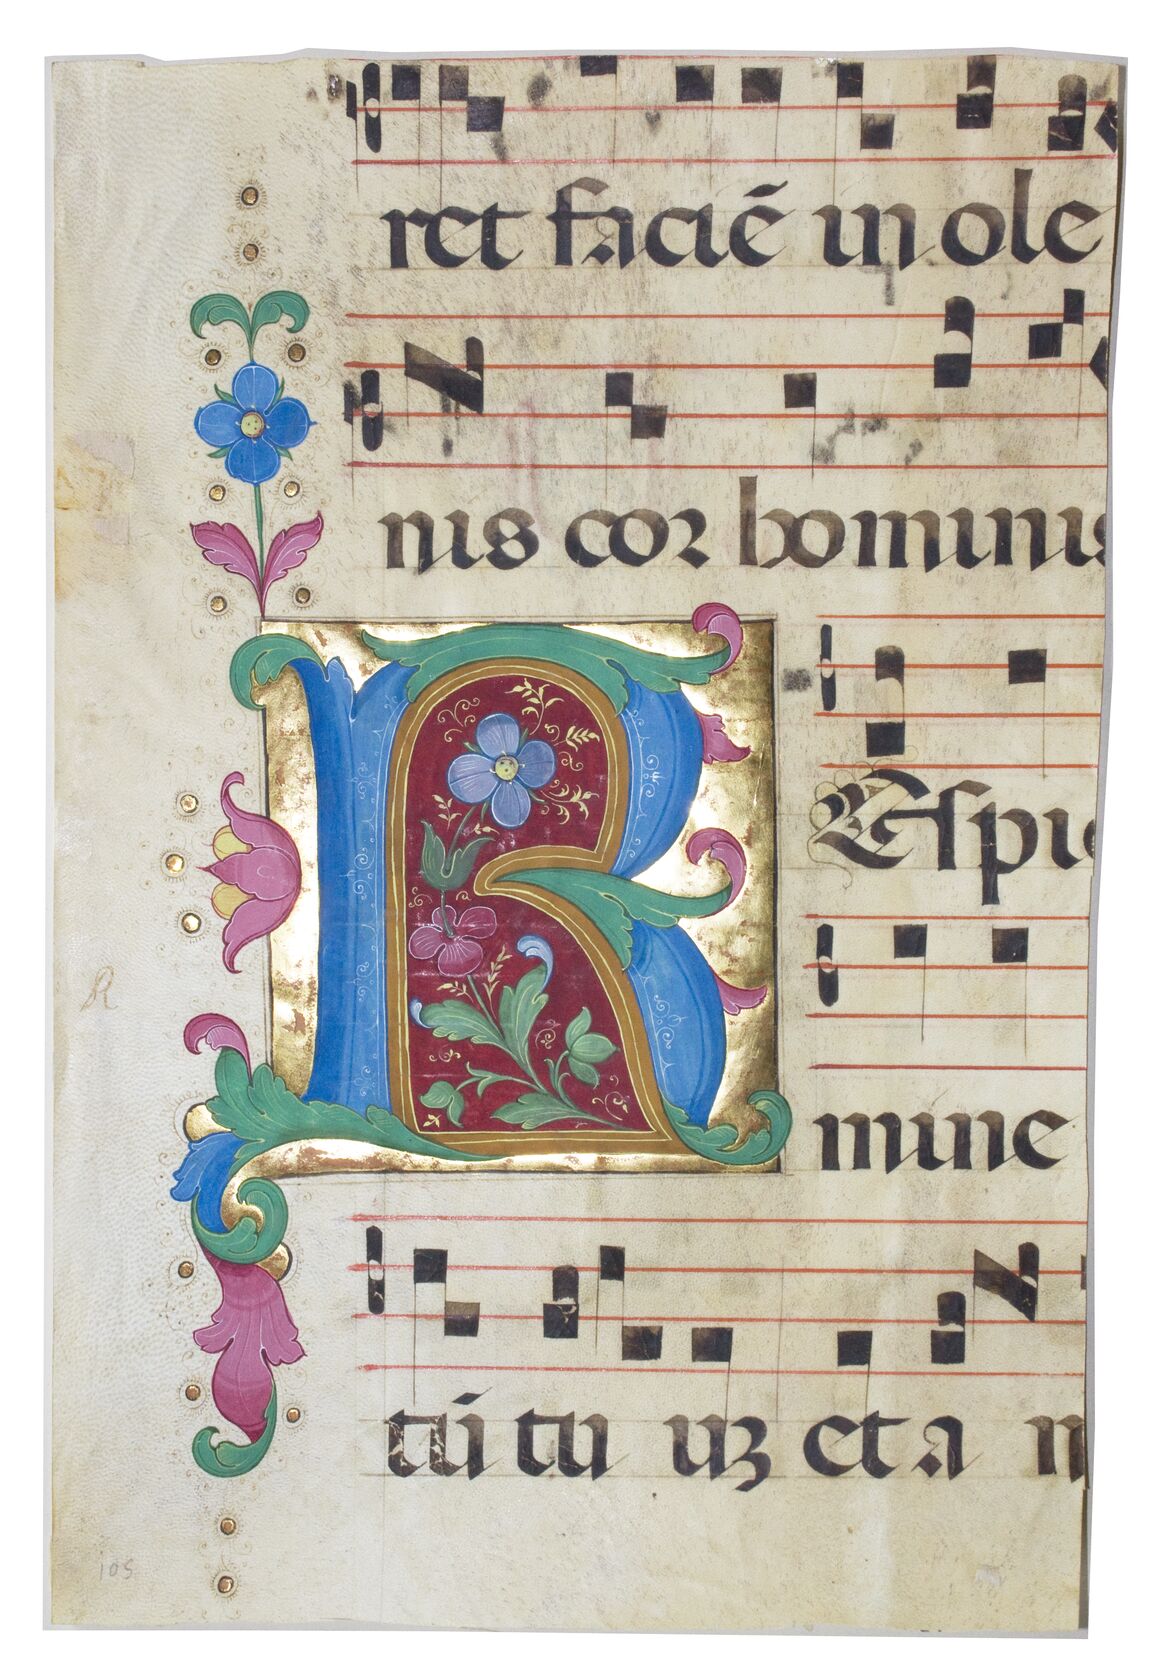 ret faciē in ole
nis cor hominis
REspic
R
mine
tū tu uʒ et a m
105